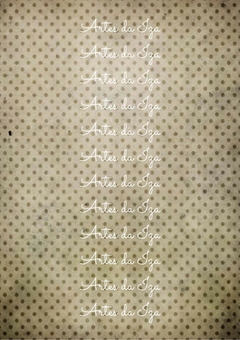 Artes da Iza
Artes da Iza
Artes da Iza
Artes da Iza
Artes da Iza
Artes da Iza
Artes da Iza
Artes da Iza
Artes da Iza
Artes da Iza
Artes da Iza
Artes da Iza